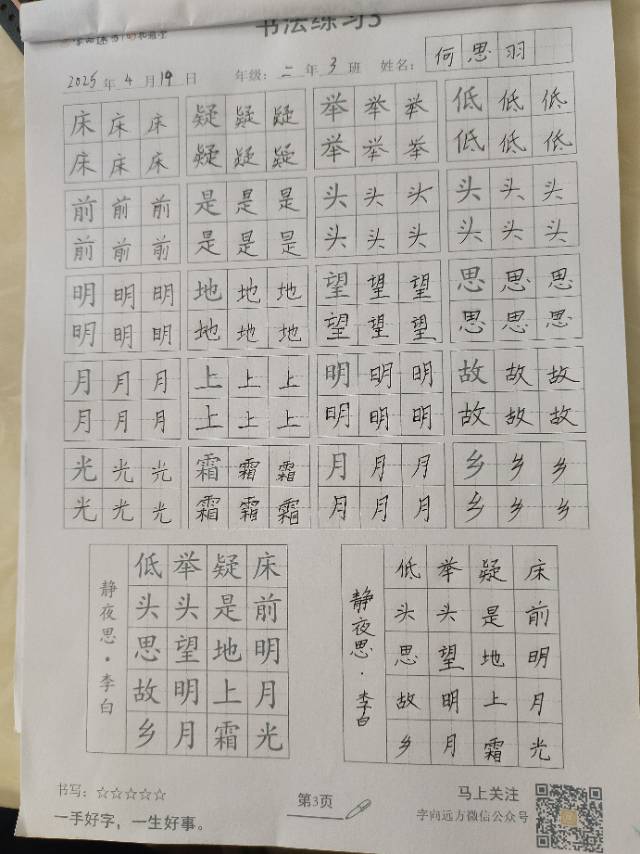 书法练习3
2025年4月19日 年级：二年3班 姓名：何思羽
床床床 疑疑疑 举举举 低低低
床床床 疑疑疑 举举举 低低低
前前前 是是是 头头头 头头头
前前前 是是是 头头头 头头头
明明明 地地地 望望望 思思思
明明明 地地地 望望望 思思思
月月月 上上上 明明明 故故故
月月月 上上上 明明明 故故故
光光光 霜霜霜 月月月 乡乡乡
光光光 霜霜霜 月月月 乡乡乡
静夜思·李白
床前明月光
疑是地上霜
举头望明月
低头思故乡
静夜思·李白
床前明月光
疑是地上霜
举头望明月
低头思故乡
书写：☆☆☆☆☆
一手好字，一生好事。
第3页
马上关注
字向远方微信公众号